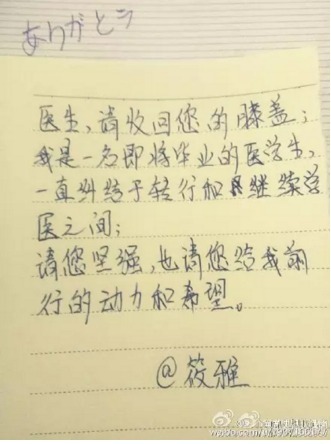 ありがとう
医生,请收回您的膝盖;
我是一名即将毕业的医学生,
一直纠结于转行和继续学
医之间;
请您坚强,也请您给我前
行的动力和希望。
@筱雅